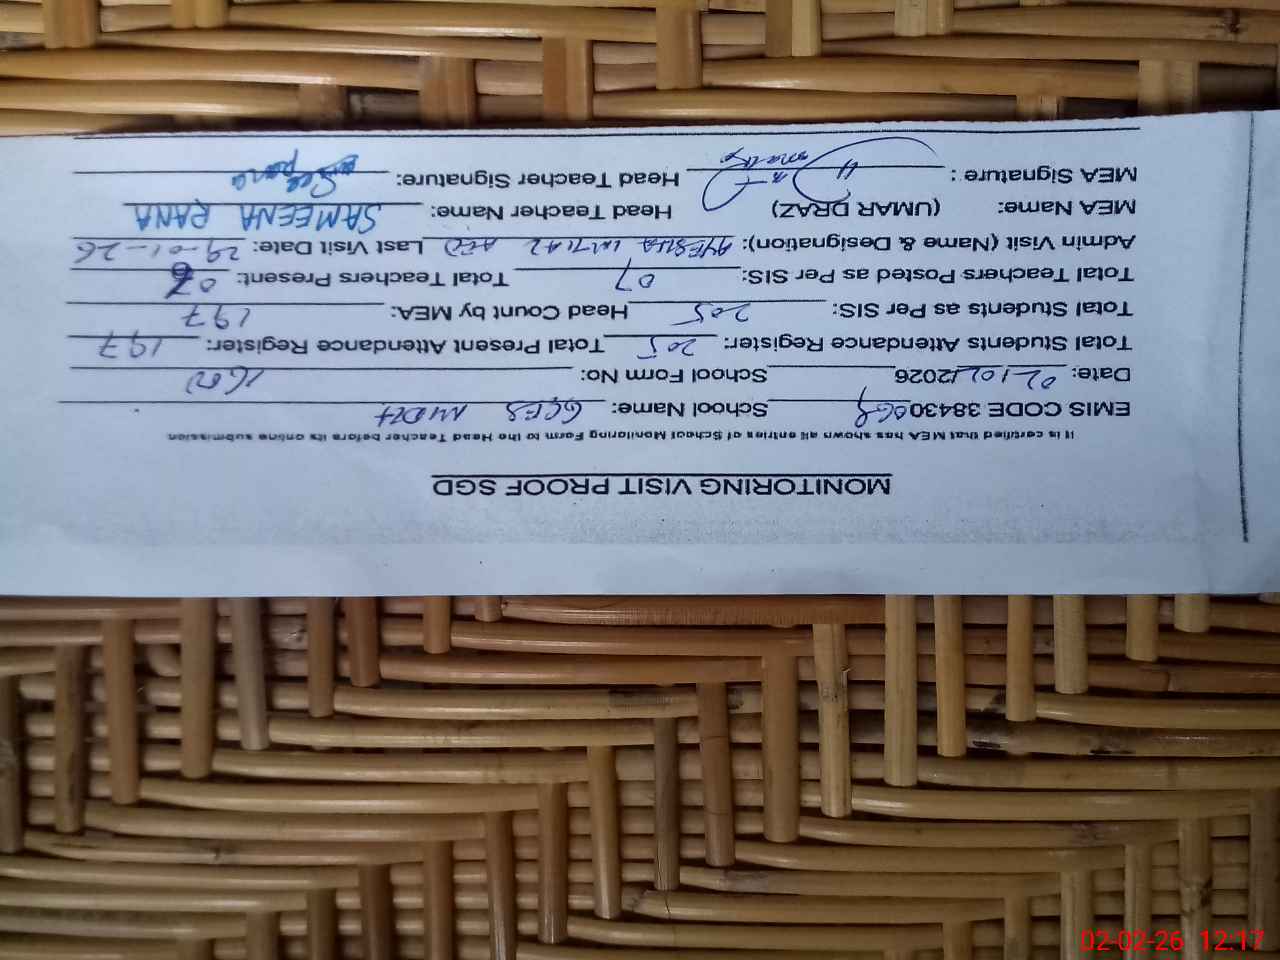 MONITORING VISIT PROOF SGD
It is certified that MEA has shown all entries of School Monitoring Form to the Head Teacher before its online submission
EMIS CODE 38430 School Name: GGES
Date: 02/02/2026 School Form No: 1600
Total Students Attendance Register: 205 Total Present Attendance Register: 197
Total Students as Per SIS: 205 Head Count by MEA: 197
Total Teachers Posted as Per SIS: 07 Total Teachers Present:
Admin Visit (Name & Designation): AYESHA IMTIAZ AEO Last Visit Date: 29-01-26
MEA Name: (UMAR DRAZ) Head Teacher Name: SAMEENA RANA
MEA Signature : Head Teacher Signature:
02-02-26 12:17